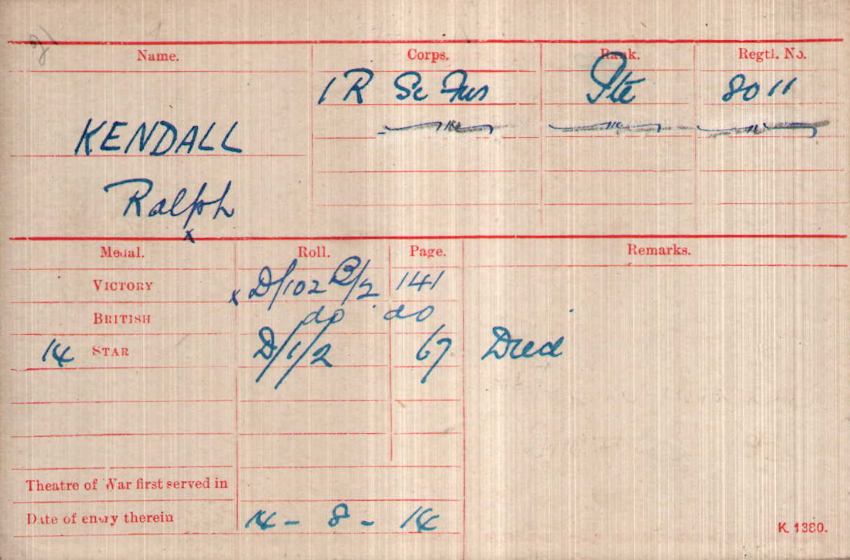 21
Name. Corps. Rank. Regtl. No.
1 R Sc Fus Pte 8011
KENDALL
Ralph
x
Medal. Roll. Page. Remarks.
VICTORY x D/102 B/2 141
BRITISH do do
14 STAR D/1/2 67 Died
Theatre of War first served in
Date of entry therein 14 - 8 - 14
K. 1380.